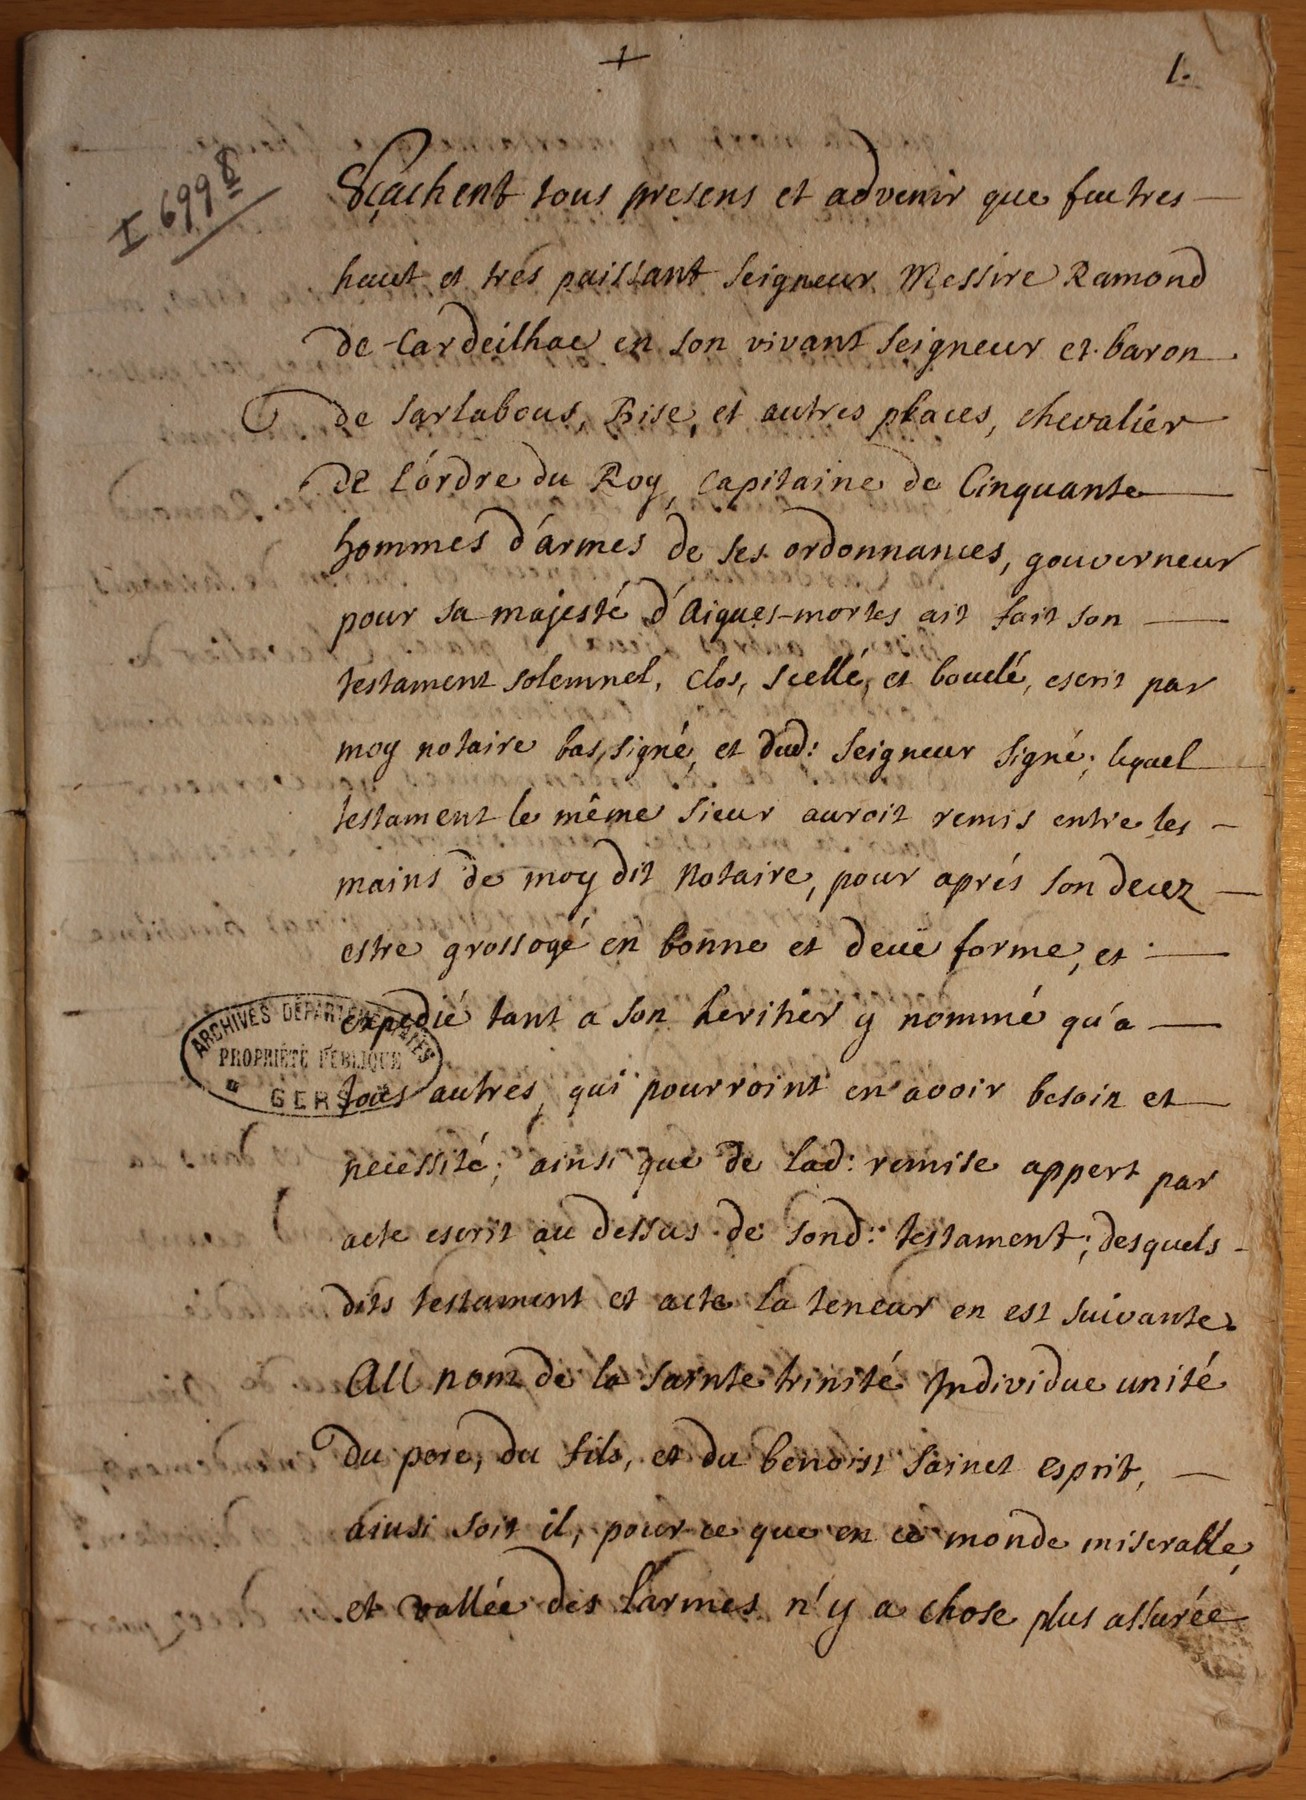 +
1.
I 6998
Sçachent tous presens et advenir que feu tres
haut et tres puissant seigneur Messire Ramond
de Cardeilhac en son vivant seigneur et baron
de Sarlabous, Bise, et autres places, chevalier
de l'ordre du Roy, capitaine de Cinquante
hommes d'armes de ses ordonnances, gouverneur
pour sa majesté d'Aigues-mortes ait fait son
testament solemnel, clos, scellé, et bouclé, escrit par
moy notaire bas, signé, et dud: seigneur signé; lequel
testament le même sieur auroit remis entre les
mains de moy dit notaire, pour aprés son decez
estre grossoyé en bonne et deüe forme, et
expedié tant a son heritier y nommé qu'a
tous autres, qui pourroint en avoir besoin et
necessité; ainsi que de lad: remise appert par
acte escrit au dessus de sond: testament; desquels
dits testament et acte la teneur en est suivante.
AU nom de la sainte trinité Individue unité
du pere, du fils, et du benoist sainct esprit,
ainsi soit il, pour ce que en ce monde miserable,
et vallée des larmes n'y a chose plus assurée
ARCHIVES DÉPARTEMENTALES
PROPRIÉTÉ PUBLIQUE
GERS